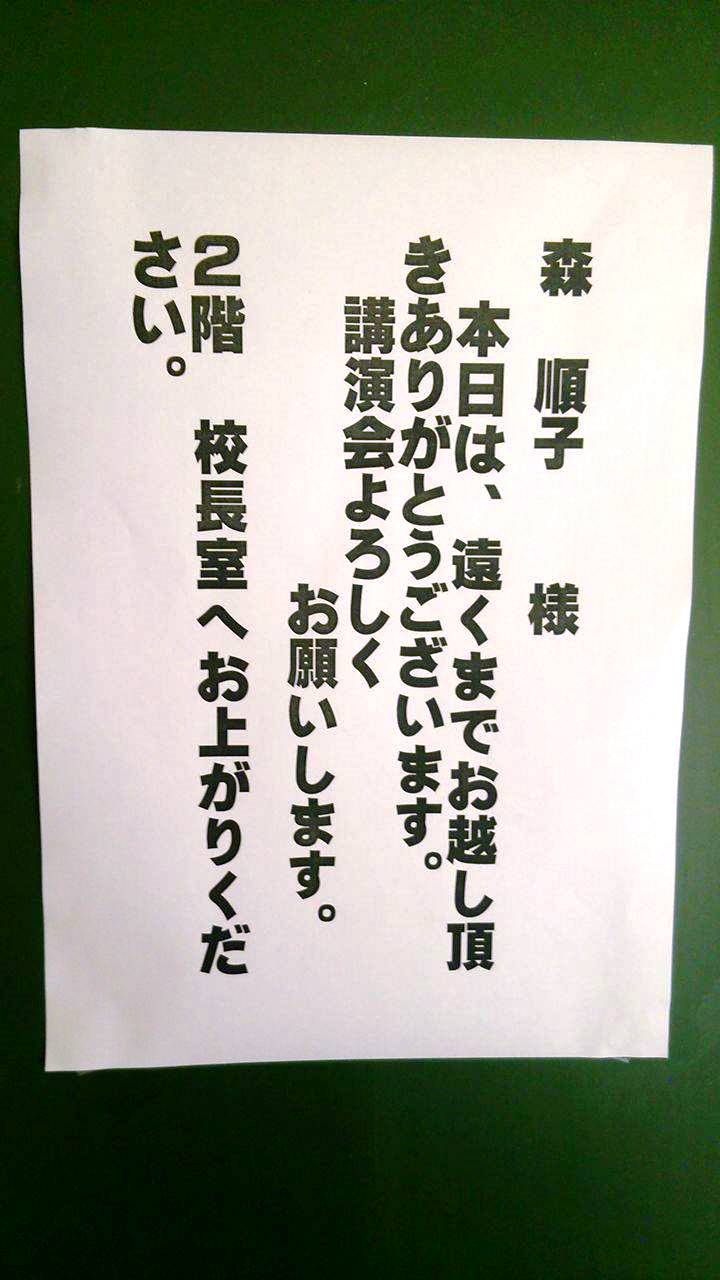 森 順子 様
本日は、遠くまでお越し頂
きありがとうございます。
講演会よろしく
お願いします。
２階 校長室へお上がりくだ
さい。